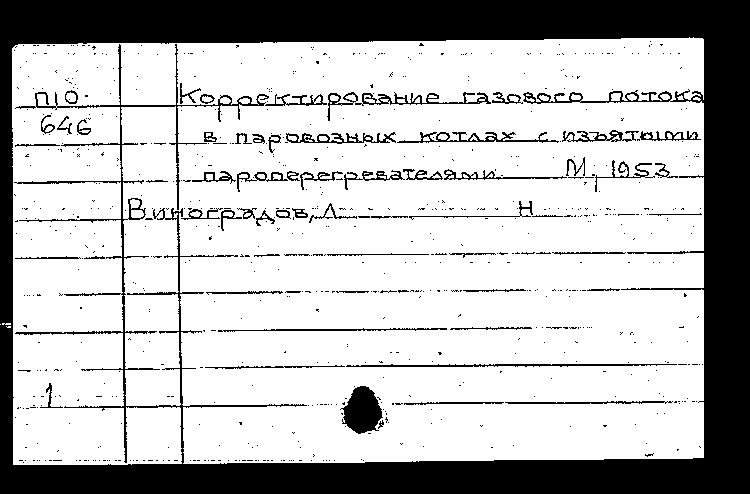 П10- Корректирование газового потока
646 в паровозных котлах с изъятыми
пароперегревателями. М, 1953
Виноградов, Л. Н
1